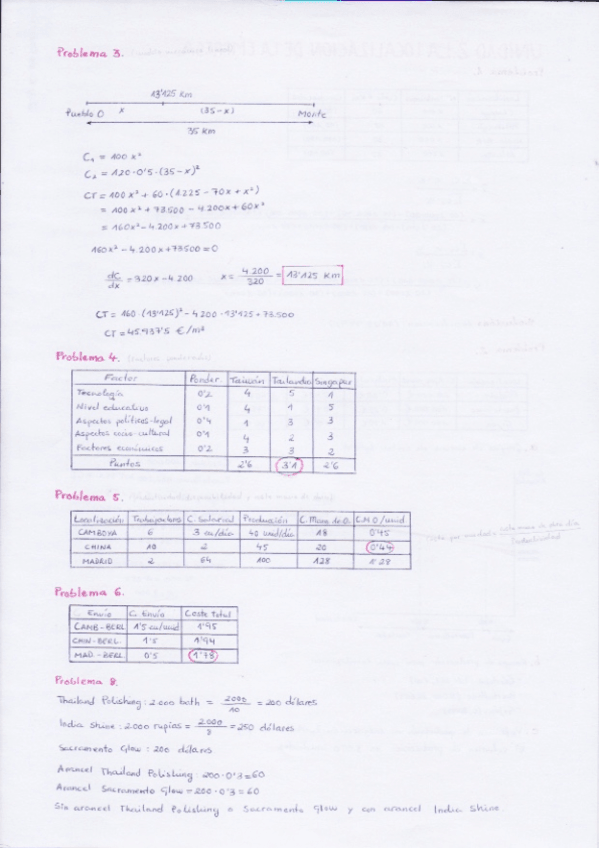 Problema 3.
13'125 Km
Pueblo D x (35-x) Monte
35 Km
C₁ = 100 x²
C₂ = 120·0'5·(35-x)²
CT = 100x² + 60·(1225 - 70x + x²)
= 100x² + 73.500 - 4.200x + 60x²
= 160x² - 4.200x + 73.500
160x² - 4.200x + 73500 = 0
dC/dx = 320x - 4.200 x = 4.200/320 = 13'125 Km
CT = 160·(13'125)² - 4200·13'125 + 73.500
CT = 45.937'5 €/m²
Problema 4.
Factor Ponder. Taiwán Tailandia Singapur
Tecnología 0'2 4 5 1
Nivel educativo 0'1 4 1 5
Aspectos políticos-legal 0'4 1 3 3
Aspectos socio-cultural 0'1 4 2 3
Factores económicos 0'2 3 3 2
Puntos 2'6 3'1 2'6
Problema 5.
Localización Trabajadores C. Salarial Producción C. Mano de O. C.M.O/unid.
CAMBOYA 6 3 cu/día 40 und/día 18 0'45
CHINA 10 2 45 20 0'44
MADRID 2 64 100 128 1'28
Problema 6.
Envío C. Envío Coste Total
CAMB-BERL 1'5 cu/unid 1'95
CHIN-BERL. 1'5 1'94
MAD-BERL 0'5 1'78
Problema 8.
Thailand Polishing: 2.000 bath = 2000/10 = 200 dólares
India Shine: 2.000 rupias = 2.000/8 = 250 dólares
Sacramento Glow: 200 dólares
Arancel Thailand Polishing: 200·0'3=60
Arancel Sacramento Glow = 200·0'3 = 60
Sin arancel Thailand Polishing o Sacramento Glow y con arancel India Shine.